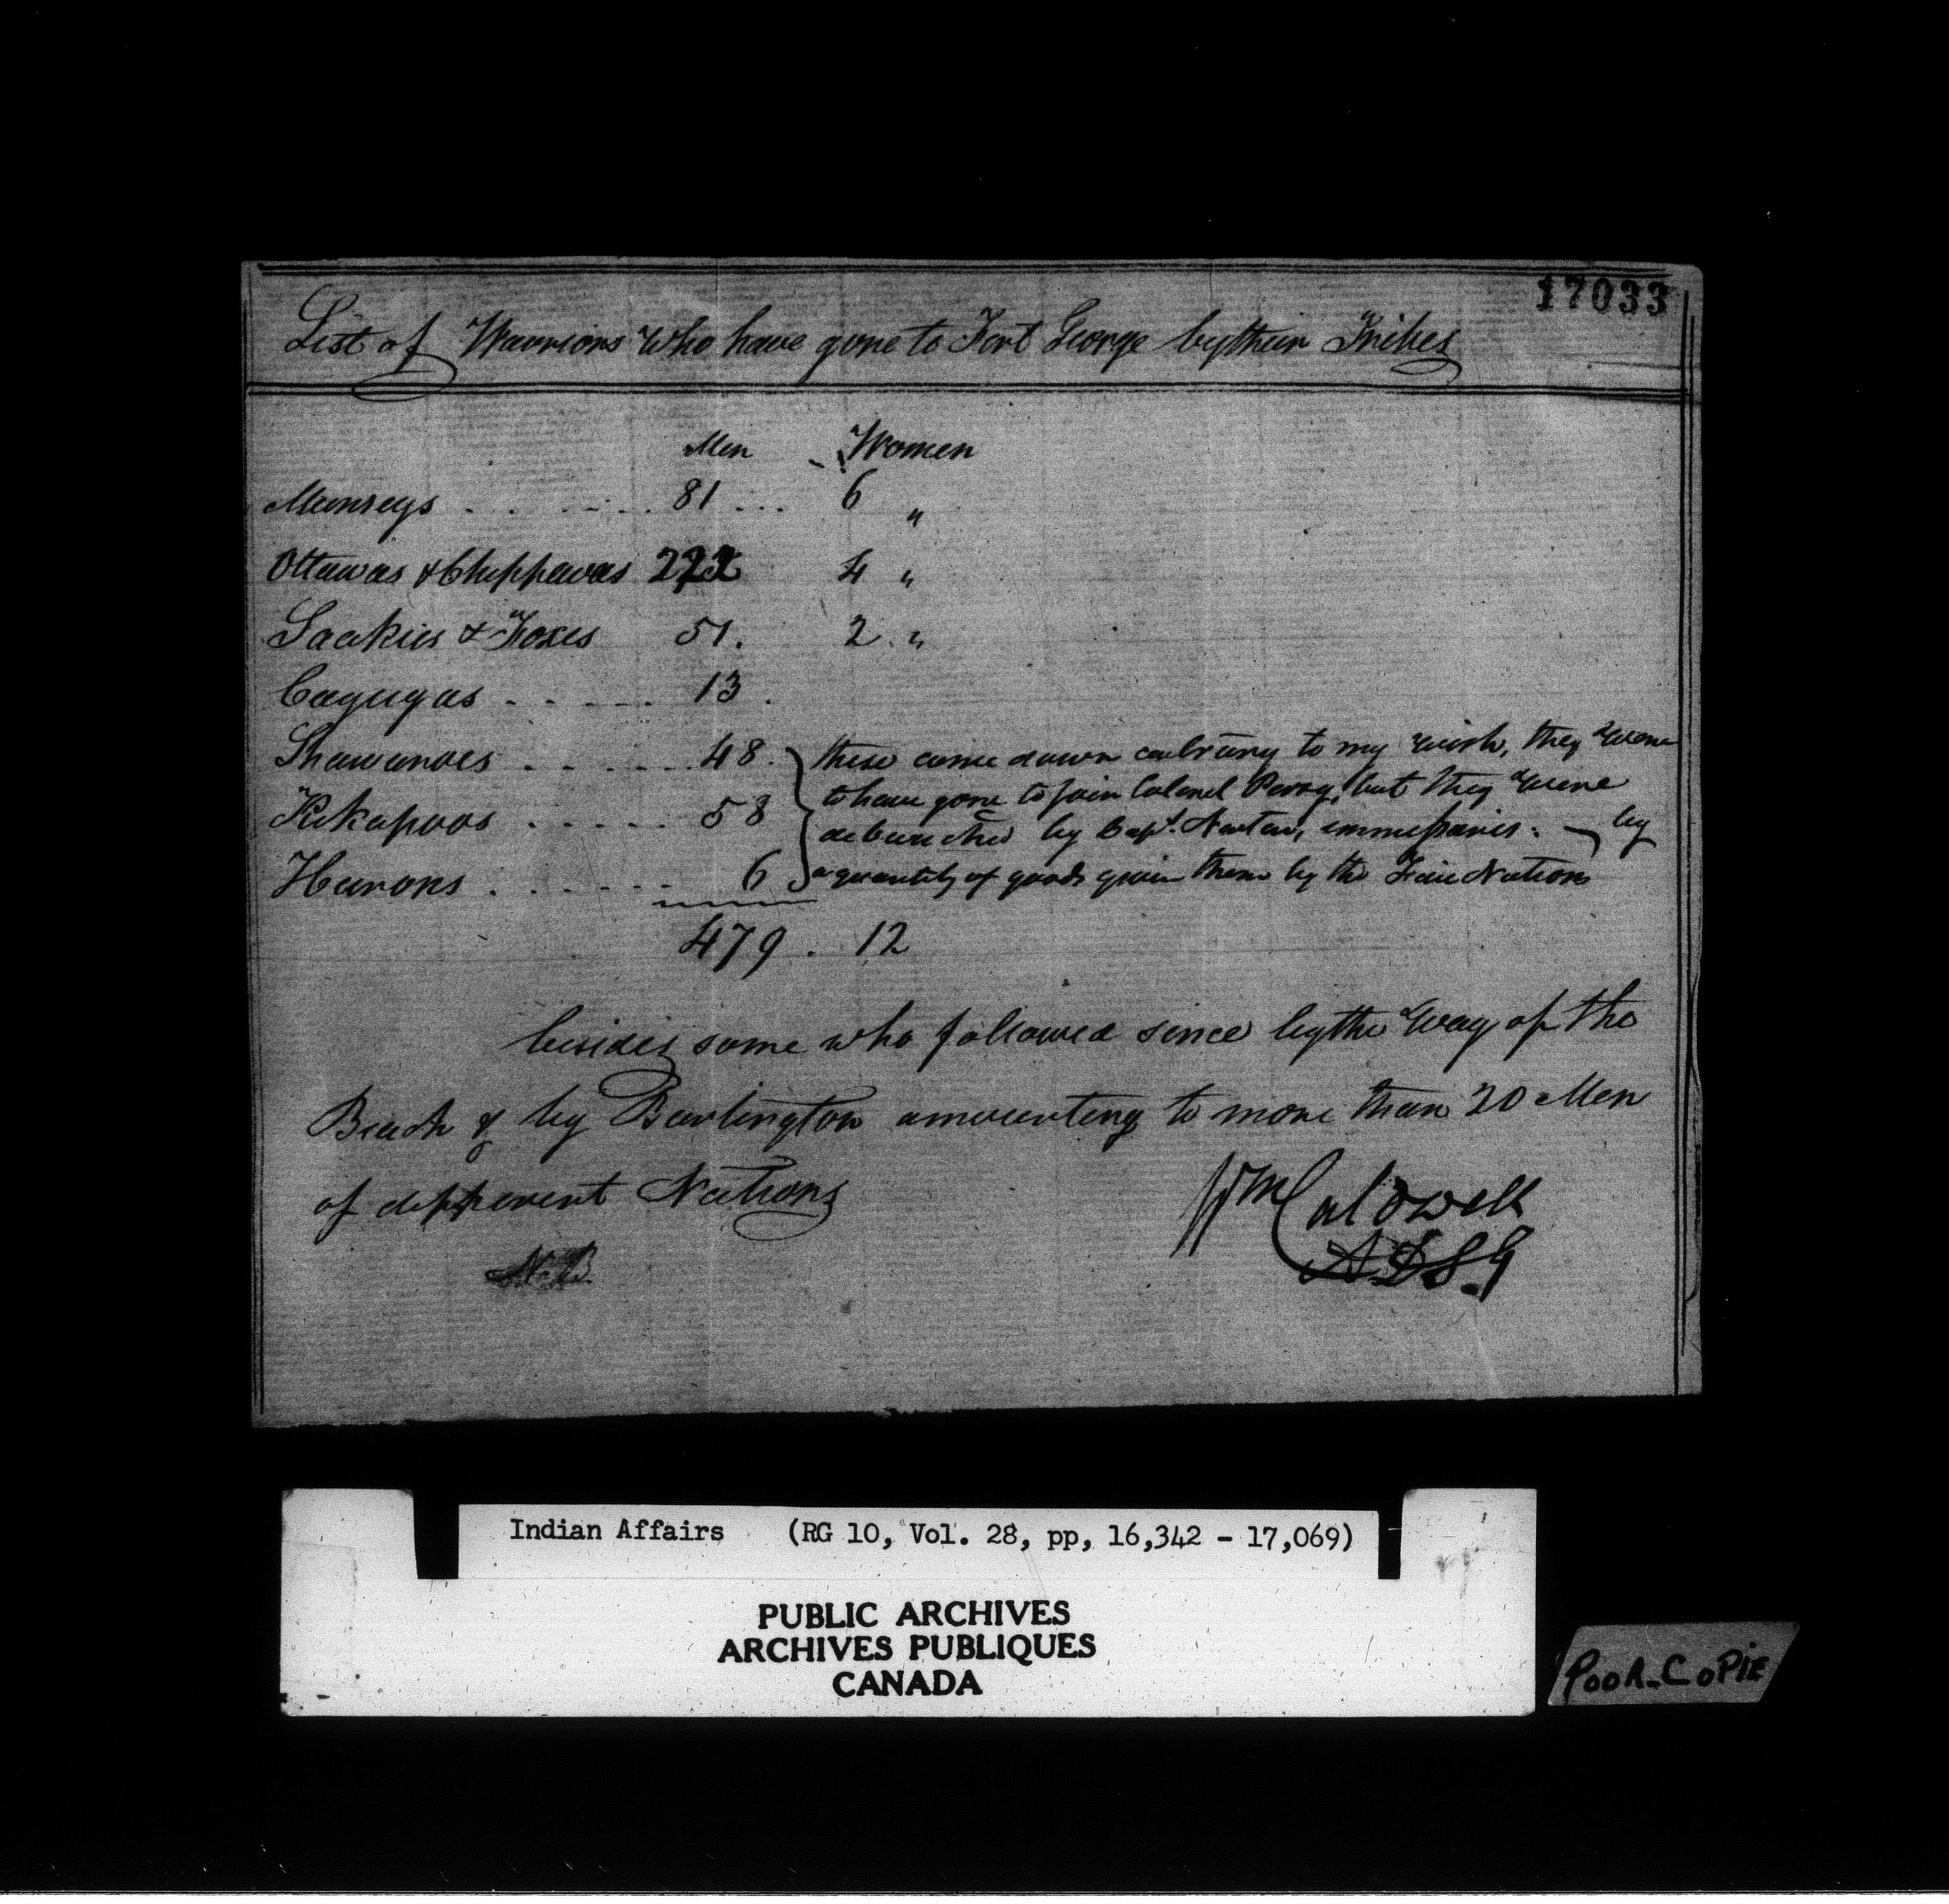 17033
List of Warriors who have gone to Fort George by their Tribes
Men Women
Munseys . . . . . . 81 . . . 6 "
Ottawas & Chippawas 222 4 "
Saakies & Foxes 51. 2 "
Cayugas . . . . . 13 .
Shawanoes . . . . . . 48. these came down contrary to my wish, they were
to have gone to join Colonel Parry, but they were
Kikapoos . . . . . 58
debauched by Capt. Norton, emmissaries. by
Hurons . . . . . . 6 a quantity of goods given them by the Five Nations
479 . 12
besides some who followed since by the way of the
Beach & by Burlington amounting to more than 20 Men
of different Nations
Wm Caldwell
N.B.
Indian Affairs (RG 10, Vol. 28, pp, 16,342 - 17,069)
PUBLIC ARCHIVES
ARCHIVES PUBLIQUES
CANADA
POOR-COPIE